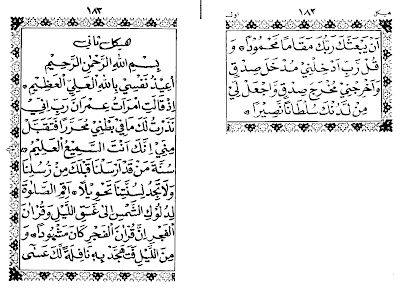 ١٨٣
هيكل ثاني
بِسْمِ اللهِ الرَّحْمٰنِ الرَّحِيْمِ
أُعِيْذُ نَفْسِيْ بِاللهِ الْعَلِيِّ الْعَظِيْمِ
اِذْ قَالَتِ امْرَاَتُ عِمْرَانَ رَبِّ اِنِّيْ
نَذَرْتُ لَكَ مَا فِيْ بَطْنِيْ مُحَرَّرًا فَتَقَبَّلْ
مِنِّيْ اِنَّكَ اَنْتَ السَّمِيْعُ الْعَلِيْمُ
سُنَّةَ مَنْ قَدْ اَرْسَلْنَا قَبْلَكَ مِنْ رُسُلِنَا
وَلَا تَجِدُ لِسُنَّتِنَا تَحْوِيْلًا اَقِمِ الصَّلٰوةَ
لِدُلُوْكِ الشَّمْسِ اِلٰى غَسَقِ اللَّيْلِ وَقُرْاٰنَ
الْفَجْرِ اِنَّ قُرْاٰنَ الْفَجْرِ كَانَ مَشْهُوْدًا وَ
مِنَ اللَّيْلِ فَتَهَجَّدْ بِهٖ نَافِلَةً لَّكَ عَسٰى
هيكل
١٨٣
اَنْ يَّبْعَثَكَ رَبُّكَ مَقَامًا مَّحْمُوْدًا وَ
قُلْ رَّبِّ اَدْخِلْنِيْ مُدْخَلَ صِدْقٍ
وَّاَخْرِجْنِيْ مُخْرَجَ صِدْقٍ وَّاجْعَلْ لِّيْ
مِنْ لَّدُنْكَ سُلْطَانًا نَّصِيْرًا